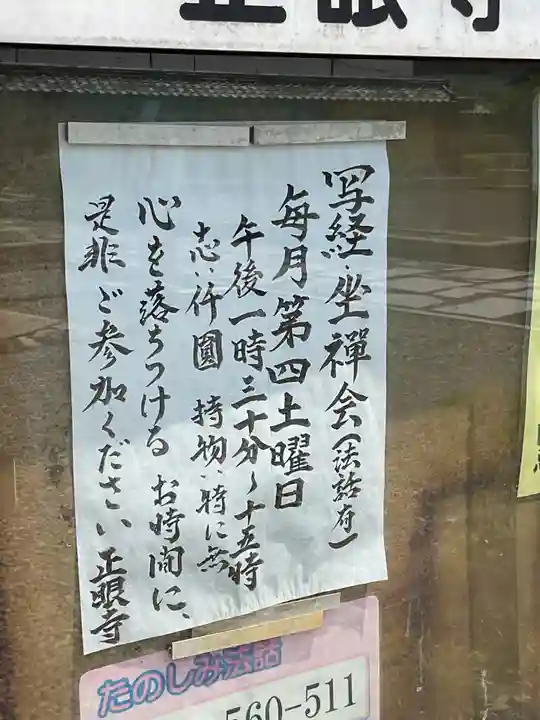 正眼寺
写経・坐禪会(法話有)
毎月第四土曜日
午後一時三十分〜十五時
志、仟圓 持物、特に無
心を落ちつける お時間に、
是非ご参加ください 正眼寺
たのしみ法話
560-511